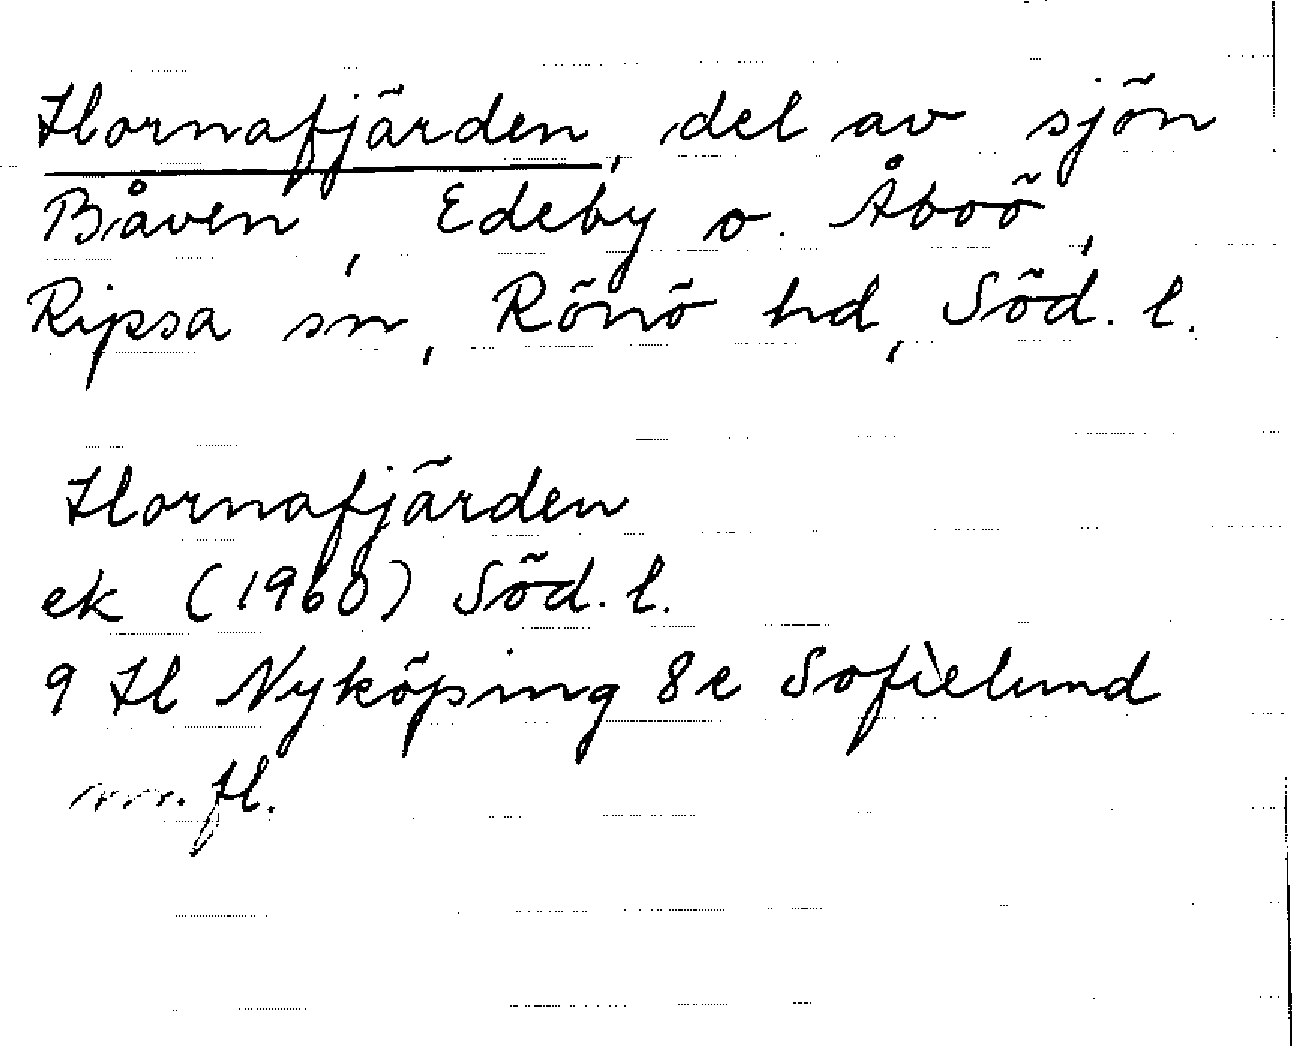 Hornafjärden, del av sjön
Båven, Edeby o. Åboö,
Ripsa sn, Rönö hd, Söd. l.
Hornafjärden
ek (1960) Söd. l.
9 H Nyköping 8e Sofielund
m. fl.